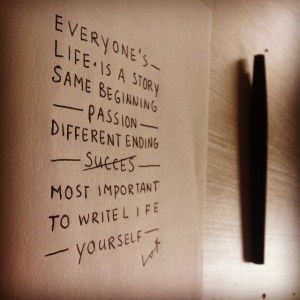 EVERYONE'S —
LIFE • IS A STORY
SAME BEGINNING
— PASSION —
DIFFERENT ENDING
— SUCCES —
MOST IMPORTANT
TO WRITE LIFE
— YOURSELF —